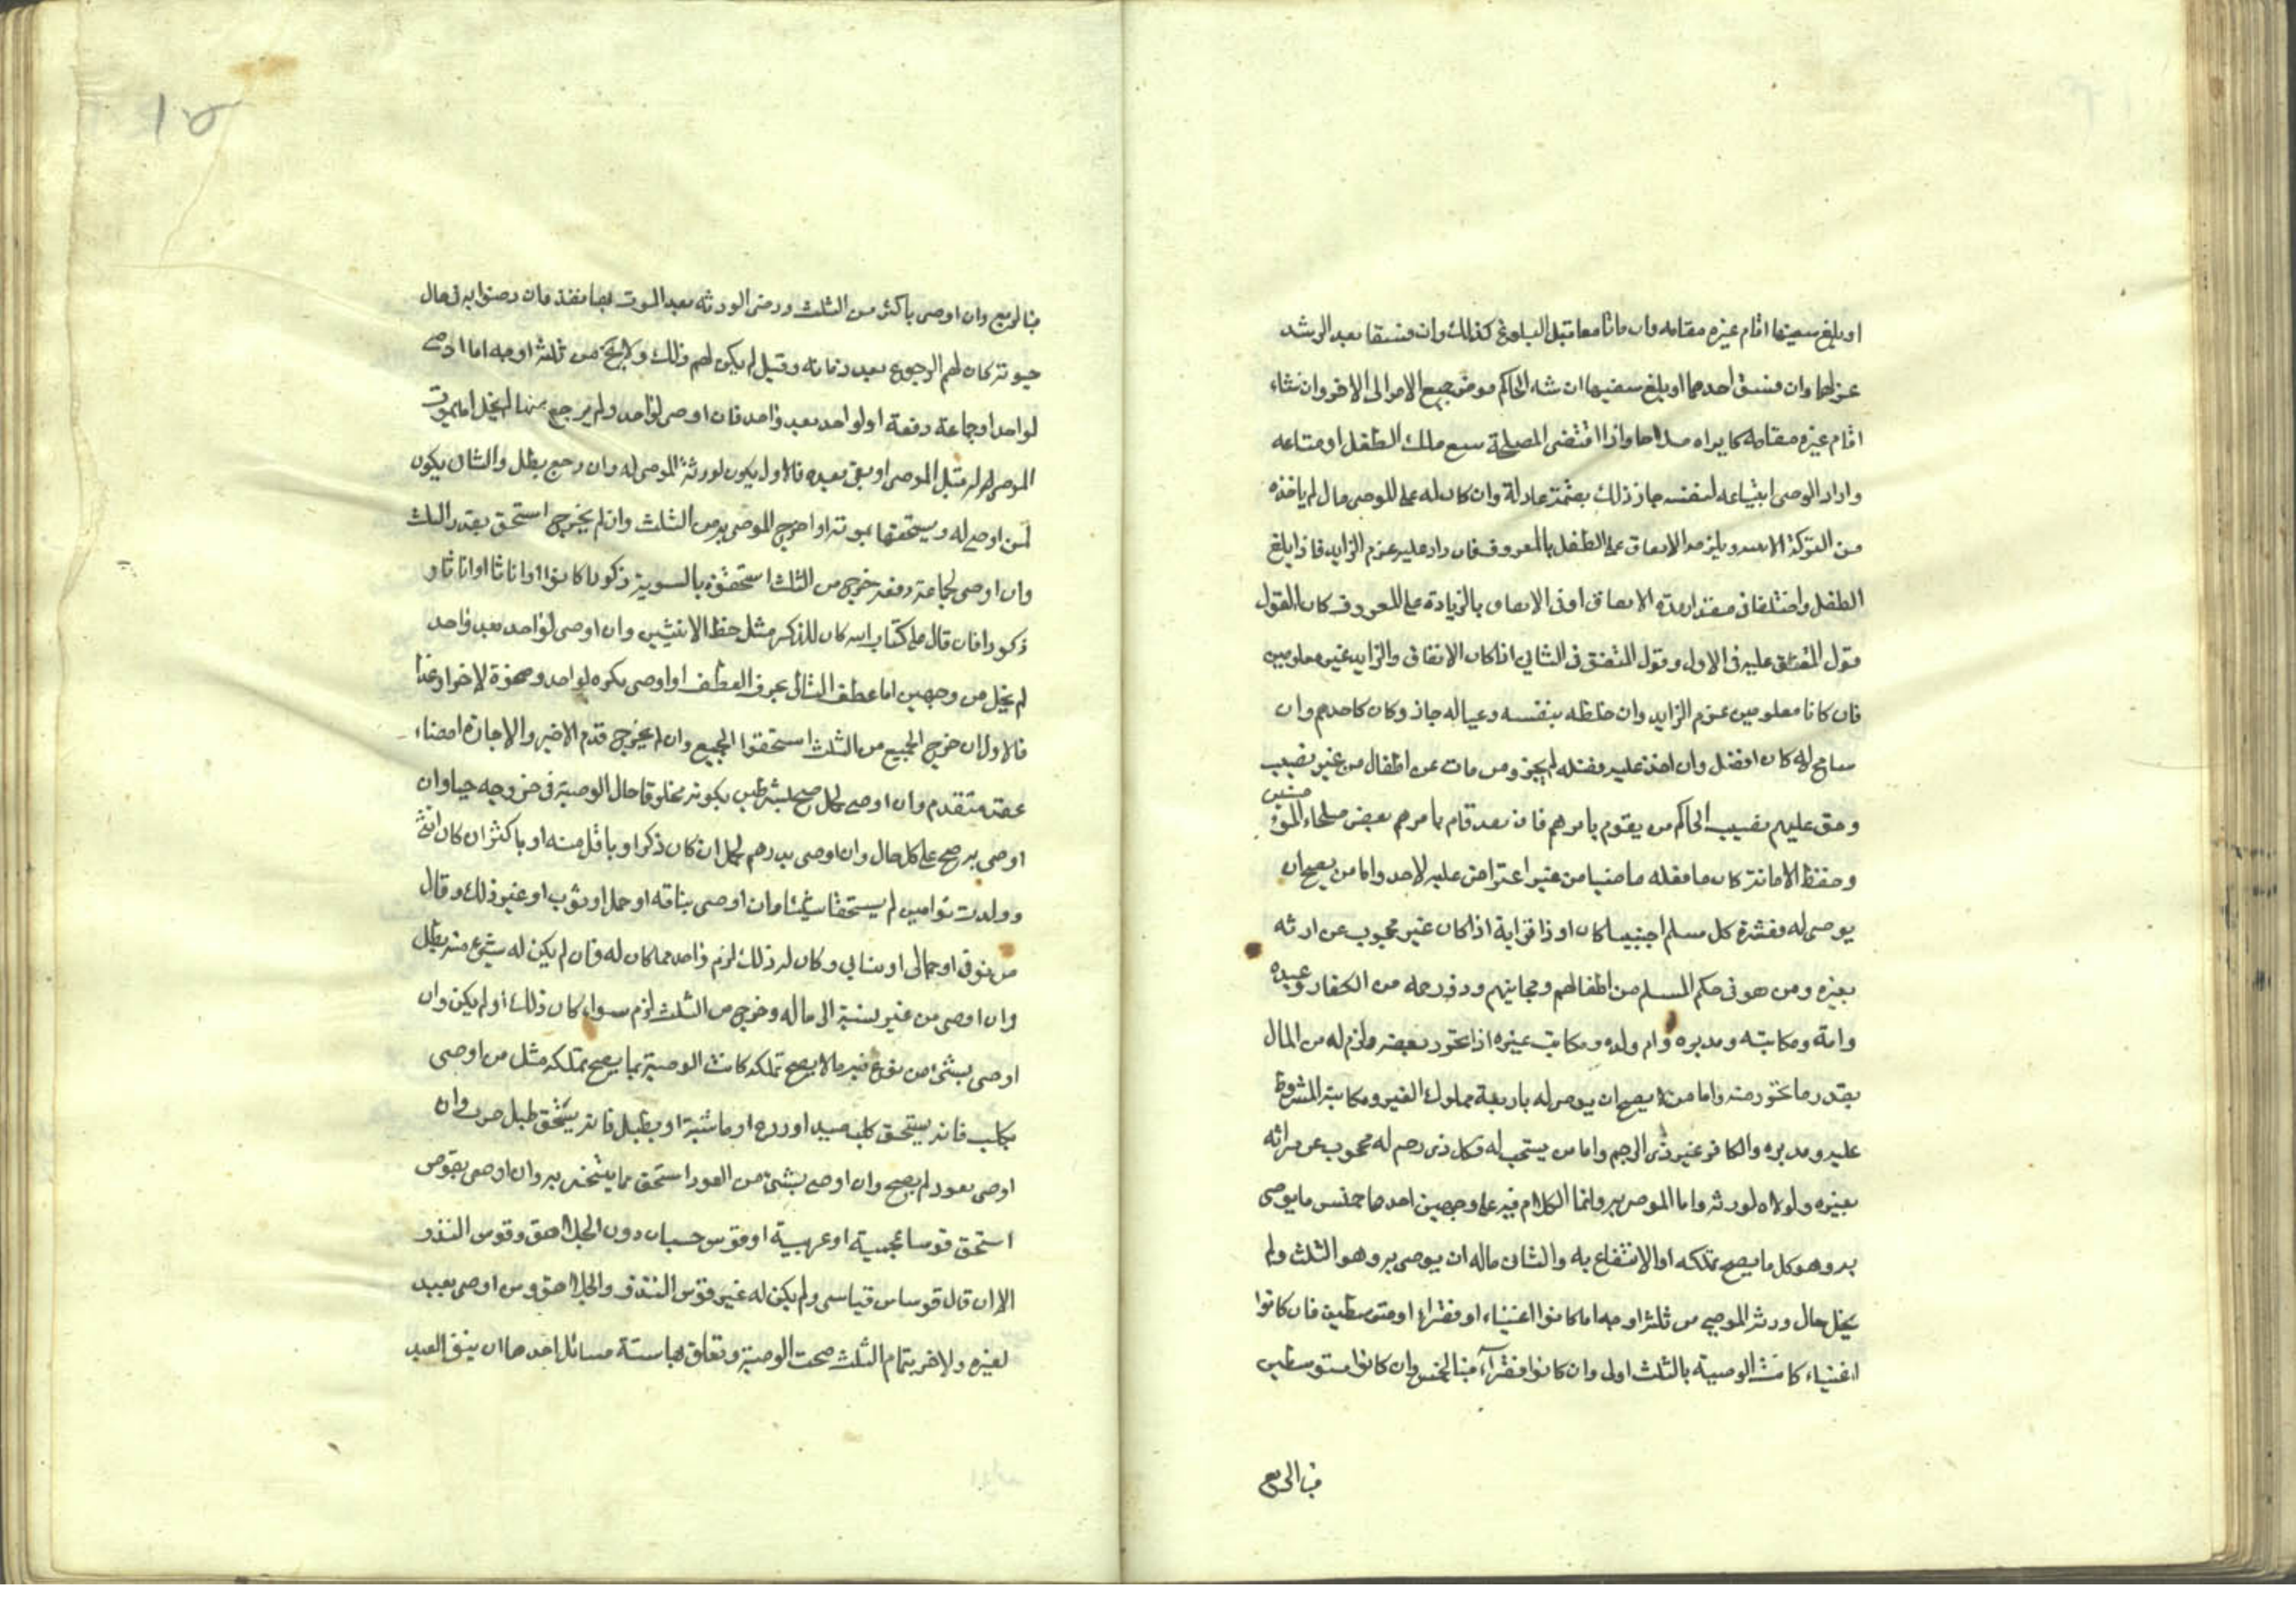 او بلغ سفيها اقام غيره مقامه وان ماتا معا قبل البلوغ كذلك وان فسقا بعد الرشد
عزلهما وان فسق احدهما او بلغ سفيها ان شاء الحاكم فوض جميع الامر الى الاخر وان شاء
اقام غيره مقامه كما يراه صلاحا واذا اقتضى المصلحة بيع ملك الطفل او متاعه
واراد الوصى ابتياعه لنفسه جاز ذلك بقيمة عادلة وان كان له على الموصى مال لم ياخذه
من التركة الا ويلزمه الانفاق على الطفل بالمعروف فان زاد عليه غرم الزايد فاذا بلغ
الطفل واختلفا فى مقدار مدة الانفاق او فى الانفاق بالزيادة على المعروف كان القول
قول المنفق عليه فى الاول وقول المنفق فى الثانى اذا كان الانفاق والزايد غير معلومين
فان كانا معلومين غرم الزايد وان خلطه بنفسه وعياله جاز وكان كاحدهم وان
سامح له كان افضل وان اخذ عليه فضله لم يجز ومن مات عن اطفال من غير نصيب
وحق عليهم نصيب الحاكم من يقوم بامرهم فان بعد قام بامرهم بعض صلحاء المؤمنين
وحفظ الامانة كان ما فعله ماضيا من غير اعتراض عليه لاحد واما من يصح ان
يوصى له فعشرة كل مسلم اجنبيا كان او ذا قرابة اذا كان غير محجوب عن ارثه
بغيره ومن هو فى حكم المسلم من اطفالهم ومجانينهم وذو رحمه من الكفار وعبده
وامة ومكاتبه ومدبره وام ولده ومكاتب غيره اذا تحرر بعضه ولزم له من المال
بقدر ما تحرر منه واما من لا يصح ان يوصى له باربعة مملوك الغير ومكاتبه المشروط
عليه ومدبره والكافر غير ذى الرحم واما من يستحب له فكل ذى رحم له محجوب عن ميراثه
بغيره ولولاه لورثه واما الموصى به وانما الكلام فيه على وجهين احدهما جنس ما يوصى
به وهو كل ما يصح تملكه او الانتفاع به والثانى ماله ان يوصى به وهو الثلث ولم
يخل حال ورثة الموصى من ثلثة اوجه اما كانوا اغنياء او فقراء او متوسطين فان كانوا
اغنياء كانت الوصية بالثلث اولى وان كانوا فقراء فبالخمس وان كانوا متوسطين
فبالربع
فبالربع وان اوصى باكثر من الثلث ورضى الورثه بعد الموت بها نفذ فان رضوا به فى حال
حيوته كان لهم الرجوع بعد وفاته وقيل لم يكن لهم ذلك ولا يخ من ثلثة اوجه اما اوصى
لواحد او جماعة دفعة او لواحد بعد واحد فان اوصى لواحد ولم يرجع منها لم يخل اما يموت
الموصى له قبل الموصى او بقى بعده فالاول يكون لورثة الموصى له وان رجع بطل والثانى يكون
لمن اوصى له ويستحقها بموته او اخرج الموصى به من الثلث وان لم يخرج استحق بقدر الثلث
وان اوصى لجماعة دفعة خرج من الثلث استحقوه بالسوية ذكورا كانوا او اناثا او اناثا و
ذكورا فان قال على كتاب الله كان للذكر مثل حظ الانثيين وان اوصى لواحد بعد واحد
لم يخل من وجهين اما عطف الثانى بحرف العطف او اوصى بكره لواحد وصخرة لاخر او
فالاول ان خرج الجميع من الثلث استحقوا الجميع وان لم يخرج قدم الاخير والاجازة امضاء
عقد متقدم وان اوصى لحمل صح بشرطين بكونه مخلوقا حال الوصية فى خروجه حيا وان
اوصى به صح على كل حال وان اوصى بدرهم لحمل ان كان ذكرا وباقل منه او باكثر ان كان انثى
وولدت توامين لم يستحقا شيئا وان اوصى بناقه او جمل او ثوب او غير ذلك وقال
من نوقى او جمالى او ثيابى وكان له ذلك لزم واحد مما كان له وان لم يكن له شيئ منه بطل
وان اوصى من غير نسبة الى ماله وخرج من الثلث لزم سواء كان ذلك او لم يكن وان
اوصى بشئ من نوع فيه مالا يصح تملكه كانت الوصية بما يصح تملكه مثل من اوصى
بكلب فانه يستحق كلب صيد او زرع او ماشية او بطبل فانه يستحق طبل حرب وان
اوصى بعود لم يصح وان اوصى بشئ من العود استحق مما يتخذ به وان اوصى بقوس
استحق قوسا عجمية او عربية او قوس حسبان دون الجلاهق وقوس الندف
الا ان قال قوسا من قياسى ولم يكن له غير قوس الندف والجلاهق ومن اوصى بعبد
لغيره ولاخر بتمام الثلث صحت الوصية وتعلق بها ستة مسائل احدها ان يبقى العبد